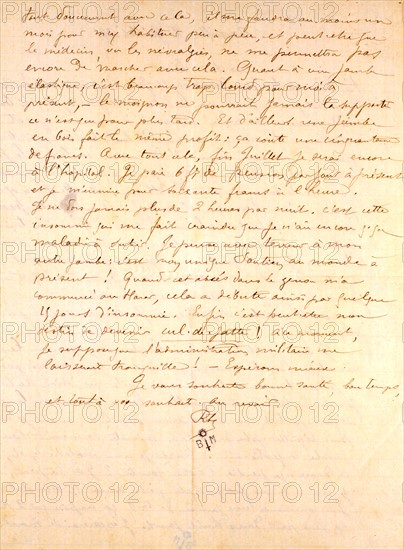 tout doucement avec cela, il me faudra au moins un
mois pour m'y habituer peu à peu, et peut-être que
le médecin, vu les névralgies, ne me permettra pas
encore de marcher avec cela. Quant à une jambe
élastique, c'est beaucoup trop lourd pour moi à
présent, le moignon ne pourrait jamais la supporter
ce n'est que pour plus tard. Et d'ailleurs une jambe
en bois fait le même profit : ça coûte une cinquantaine
de francs. Avec tout cela, fin Juillet je serai encore
à l'hôpital. Je paie 6 f de pension par jour à présent
et je m'ennuie pour soixante francs à l'heure.
Je ne dors jamais plus de 2 heures par nuit. c'est cette
insomnie qui me fait craindre que je n'aie encore quelque
maladie à subir. Je pense avec terreur à mon
autre jambe : c'est mon unique soutien au monde à
présent ! Quand cet abcès dans le genou m'a
commencé au Harar, cela a débuté ainsi par quelque
15 jours d'insomnie. Enfin, c'est peut-être mon
destin de devenir cul-de-jatte ! à ce moment,
je suppose que l'administration militaire me
laisserait tranquille ! — Espérons mieux.
Je vous souhaite bonne santé, bon temps,
et tout à vos souhaits. Au revoir.
Rd
B M
PHOTO 12